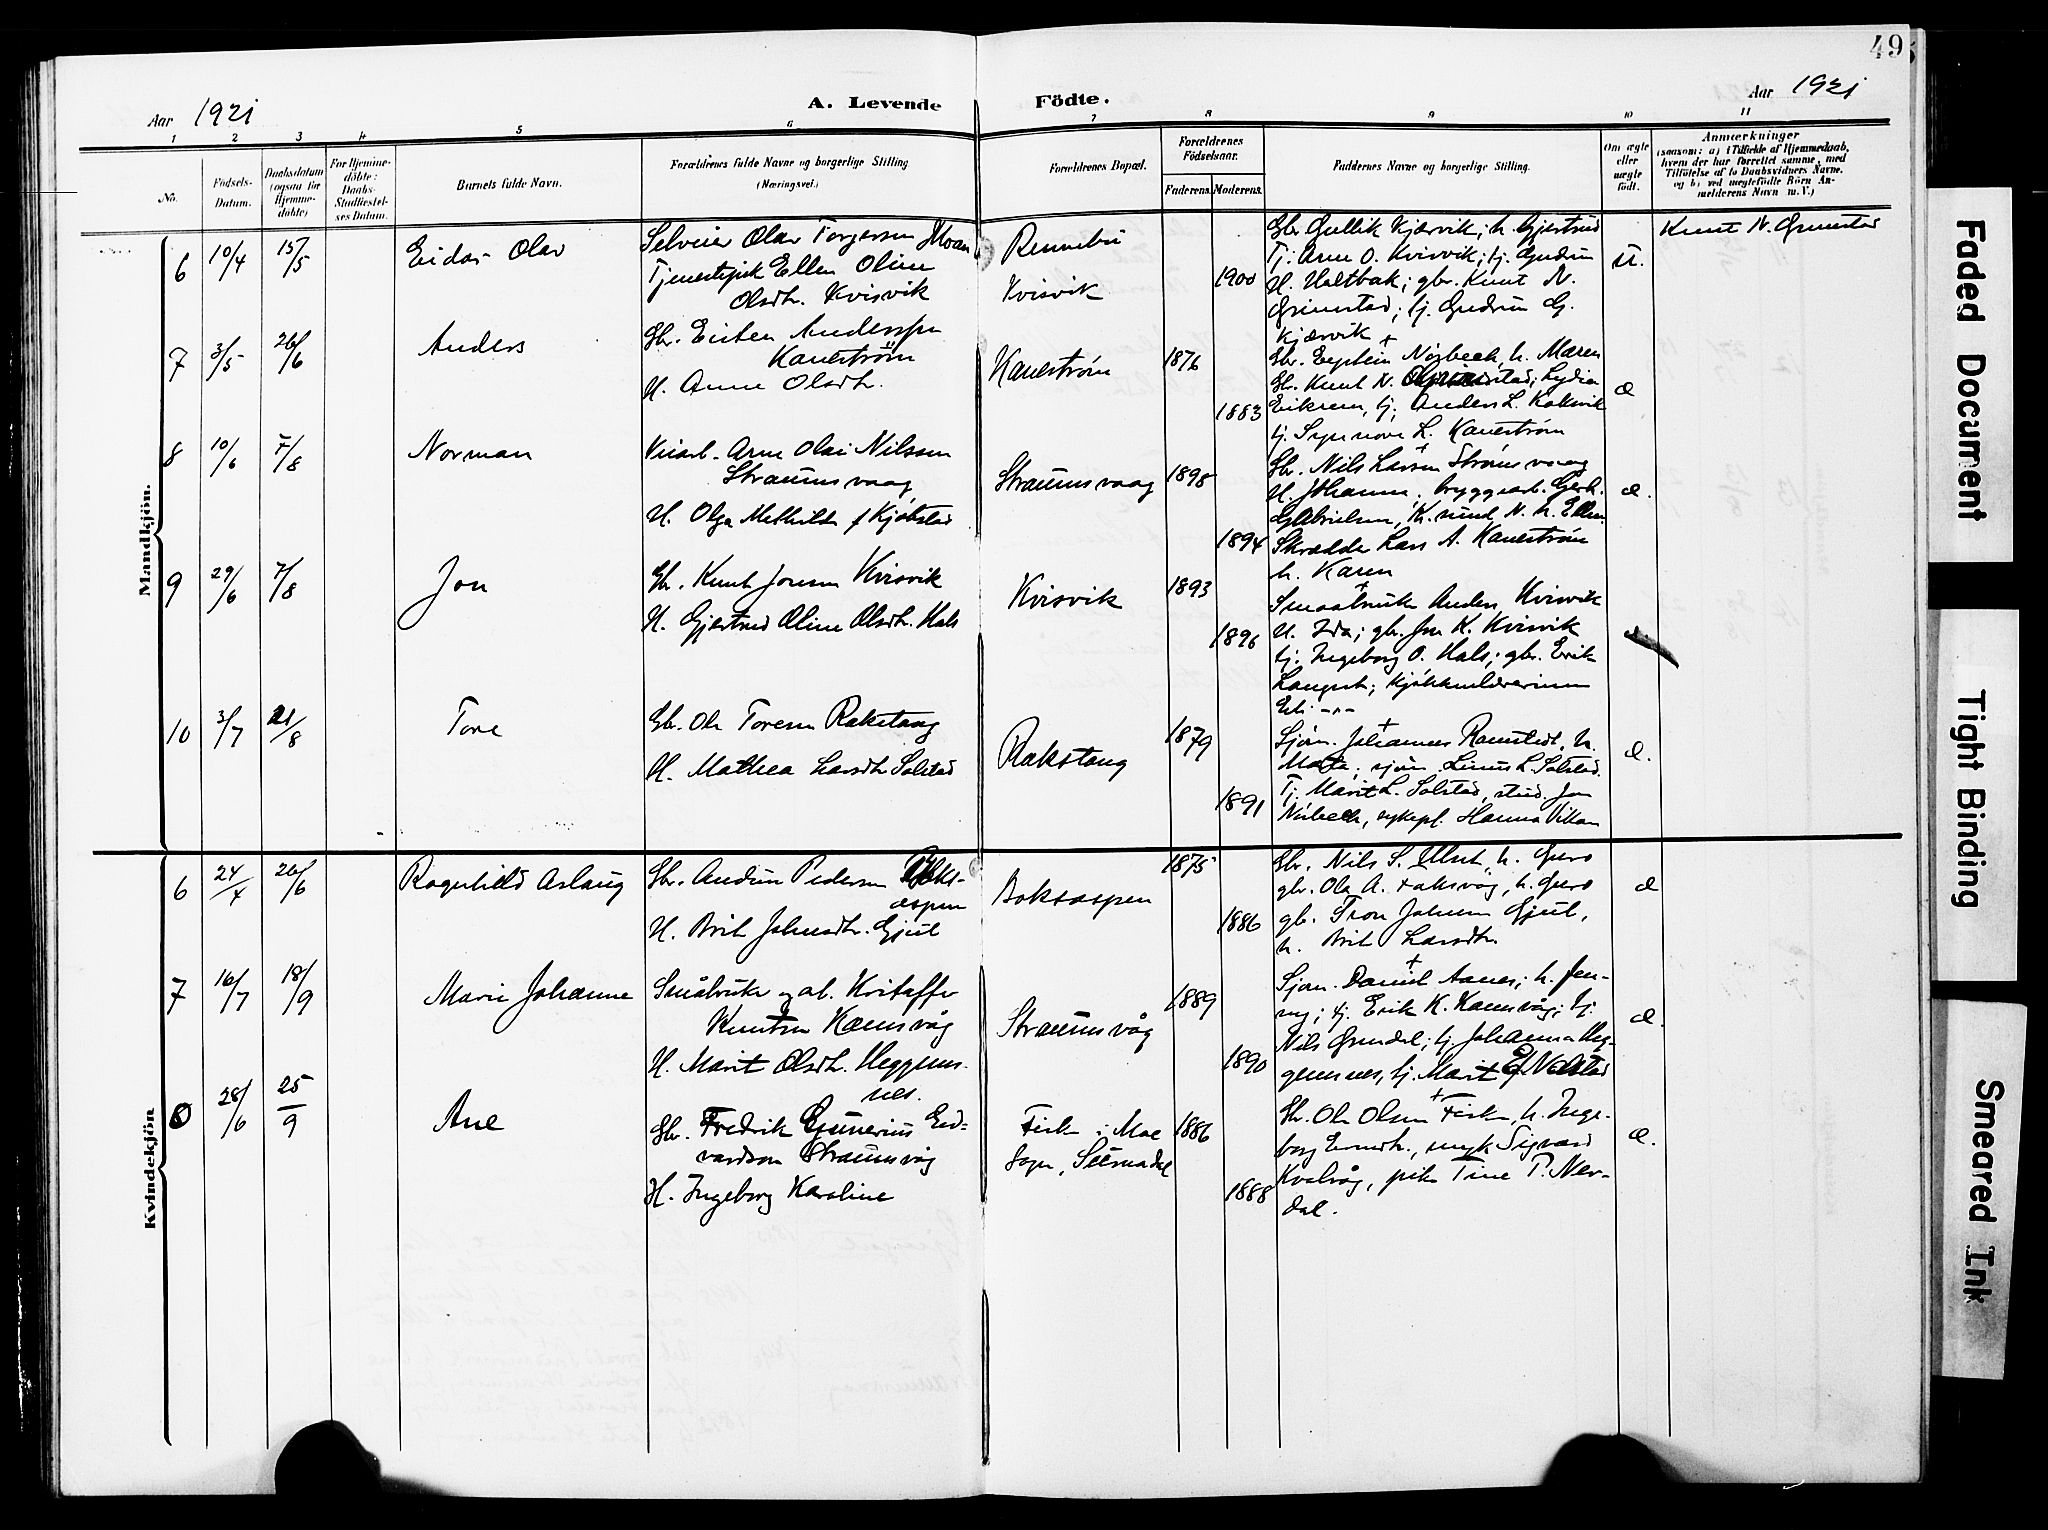 49
Aar 1921
A. Levende
Födte.
Aar 1921
1 2 3 4 5 6 7 8 9 10 11
No.
Födsels-
Datum.
Daabsdatum
(ogsaa for
Hjemme-
döbte)
For Hjemme-
döbte:
Daabs-
Stadfæstel-
ses Datum.
Barnets fulde Navn.
Forældrenes fulde Navne og borgerlige Stilling
(Næringsvei.)
Forældrenes Bopæl.
Forældrenes
Födselsaar.
Faderens. Moderens.
Faddernes Navne og borgerlige Stilling.
Om ægte
eller
uægte
födt.
Anmærkninger
(saasom: a) i Tilfælde af Hjemmedaab,
hvem der har forrettet samme, med
Tilföielse af to Daabsvidners Navne.
og b) ved uægtefödte Börn An-
melderens Navn m. V.)
Mandkjön.
6 10/4 15/5 Eidar Olav
Selveier Olav Torgersen Moan
Tjenestepik Ellen Oline
Olsdtr. Kvisvik
Rennebu
Kvisvik
1900
Gbr. Gullik Kjørvik; h. Gjertrud
Tj. Arne O. Kvisvik; tj. Gudrun
H. Holtbak; gbr. Knut N.
Grimstad; tj. Gudrun G.
Kjærvik
U.
Knut N. Grimstad
7 3/5 26/6 Anders
Gbr. Eisten Anderssen
Kanestrøm
H. Anne Olsdtr.
Kanestrøm
1876
1883
Gbr. Eystein Norbech, h. Maren
Gbr. Knut N. Grimstad; Lydia
Eikrem, tj. Anders L. Koksvik
tj. Synnøve L. Kanestrøm
Æ
8 10/6 7/8 Norman
Veiarb. Arne Olai Nilssen
Straumsvaag
H. Olga Methilde f. Kjøbstad
Straumsvaag
1898
1894
Gbr. Nils Larsen Strømsvaag
H. Johanne, bryggearb. Gerh.
Gabrielsen, K.sund N. h. Ellen
Skrædder Lars A. Kanestrøm
h. Karen
Æ.
9 29/6 7/8 Jon
Gb. Knut Jonsen Kvisvik
H. Gjertrud Oline Olsdtr. Hals
Kvisvik
1893
1896
Smaabruker Anders Kvisvik
H. Ida; gbr. Jon K. Kvisvik
tj. Ingeborg O. Hals; gbr. Erik
Langset; kjøkkenlærerinne
Eli -"-
Æ.
10 3/7 21/8 Tore
Gb. Ole Toresen Rakstang
H. Mathea Larsdtr Solstad
Rakstang
1879
1891
Sjøm. Johannes Ramstedt, h.
Marta; sjøm. Linus L. Solstad.
Tj. Marit L. Solstad, stud. Jon
Norbech, sykepl. Hanna Vikan
Æ.
Kvindekjön
6 24/4 26/6 Ragnhild Aslaug
Gbr. Audun Pedersen Boks-
aspen
H. Brit Johnsdtr. Gjul
Boksaspen
1875
1886
Gbr. Nils S. Ulset, h. Guro
gbr. Ola A. Foksvåg, h. Guro
gb. Tron Johnsen Gjul,
h. Brit Larsdtr.
Æ
7 16/7 18/9 Marie Johanne
Småbruker og arb. Kristoffer
Knutsen Kamsvåg
H. Marit Olsdtr. Heggems-
nes.
Straumsvåg
1889
1890
Sjøm. Daniel Aanes; h. Jen-
ny; tj. Erik K. Kamsvåg; tj.
Nils Grendal; tj. Johanna Heg-
gemsnes, tj. Marit E. Nolstad
Æ.
8 28/6 25/9 Ane
Gbr. Fredrik Gunerius Ed-
vardsen Straumsvåg
H. Ingeborg Karoline
Fisk. i Moe
Sogn, Surnadal
1886
1888
Gbr. Ole Olsen Fiske, h. Inge-
borg Evensdtr., ungk. Sigvard
Kvalvåg, pike Tine P. Ner-
dal.
Æ.
Faded Document
Tight Binding
Smeared Ink